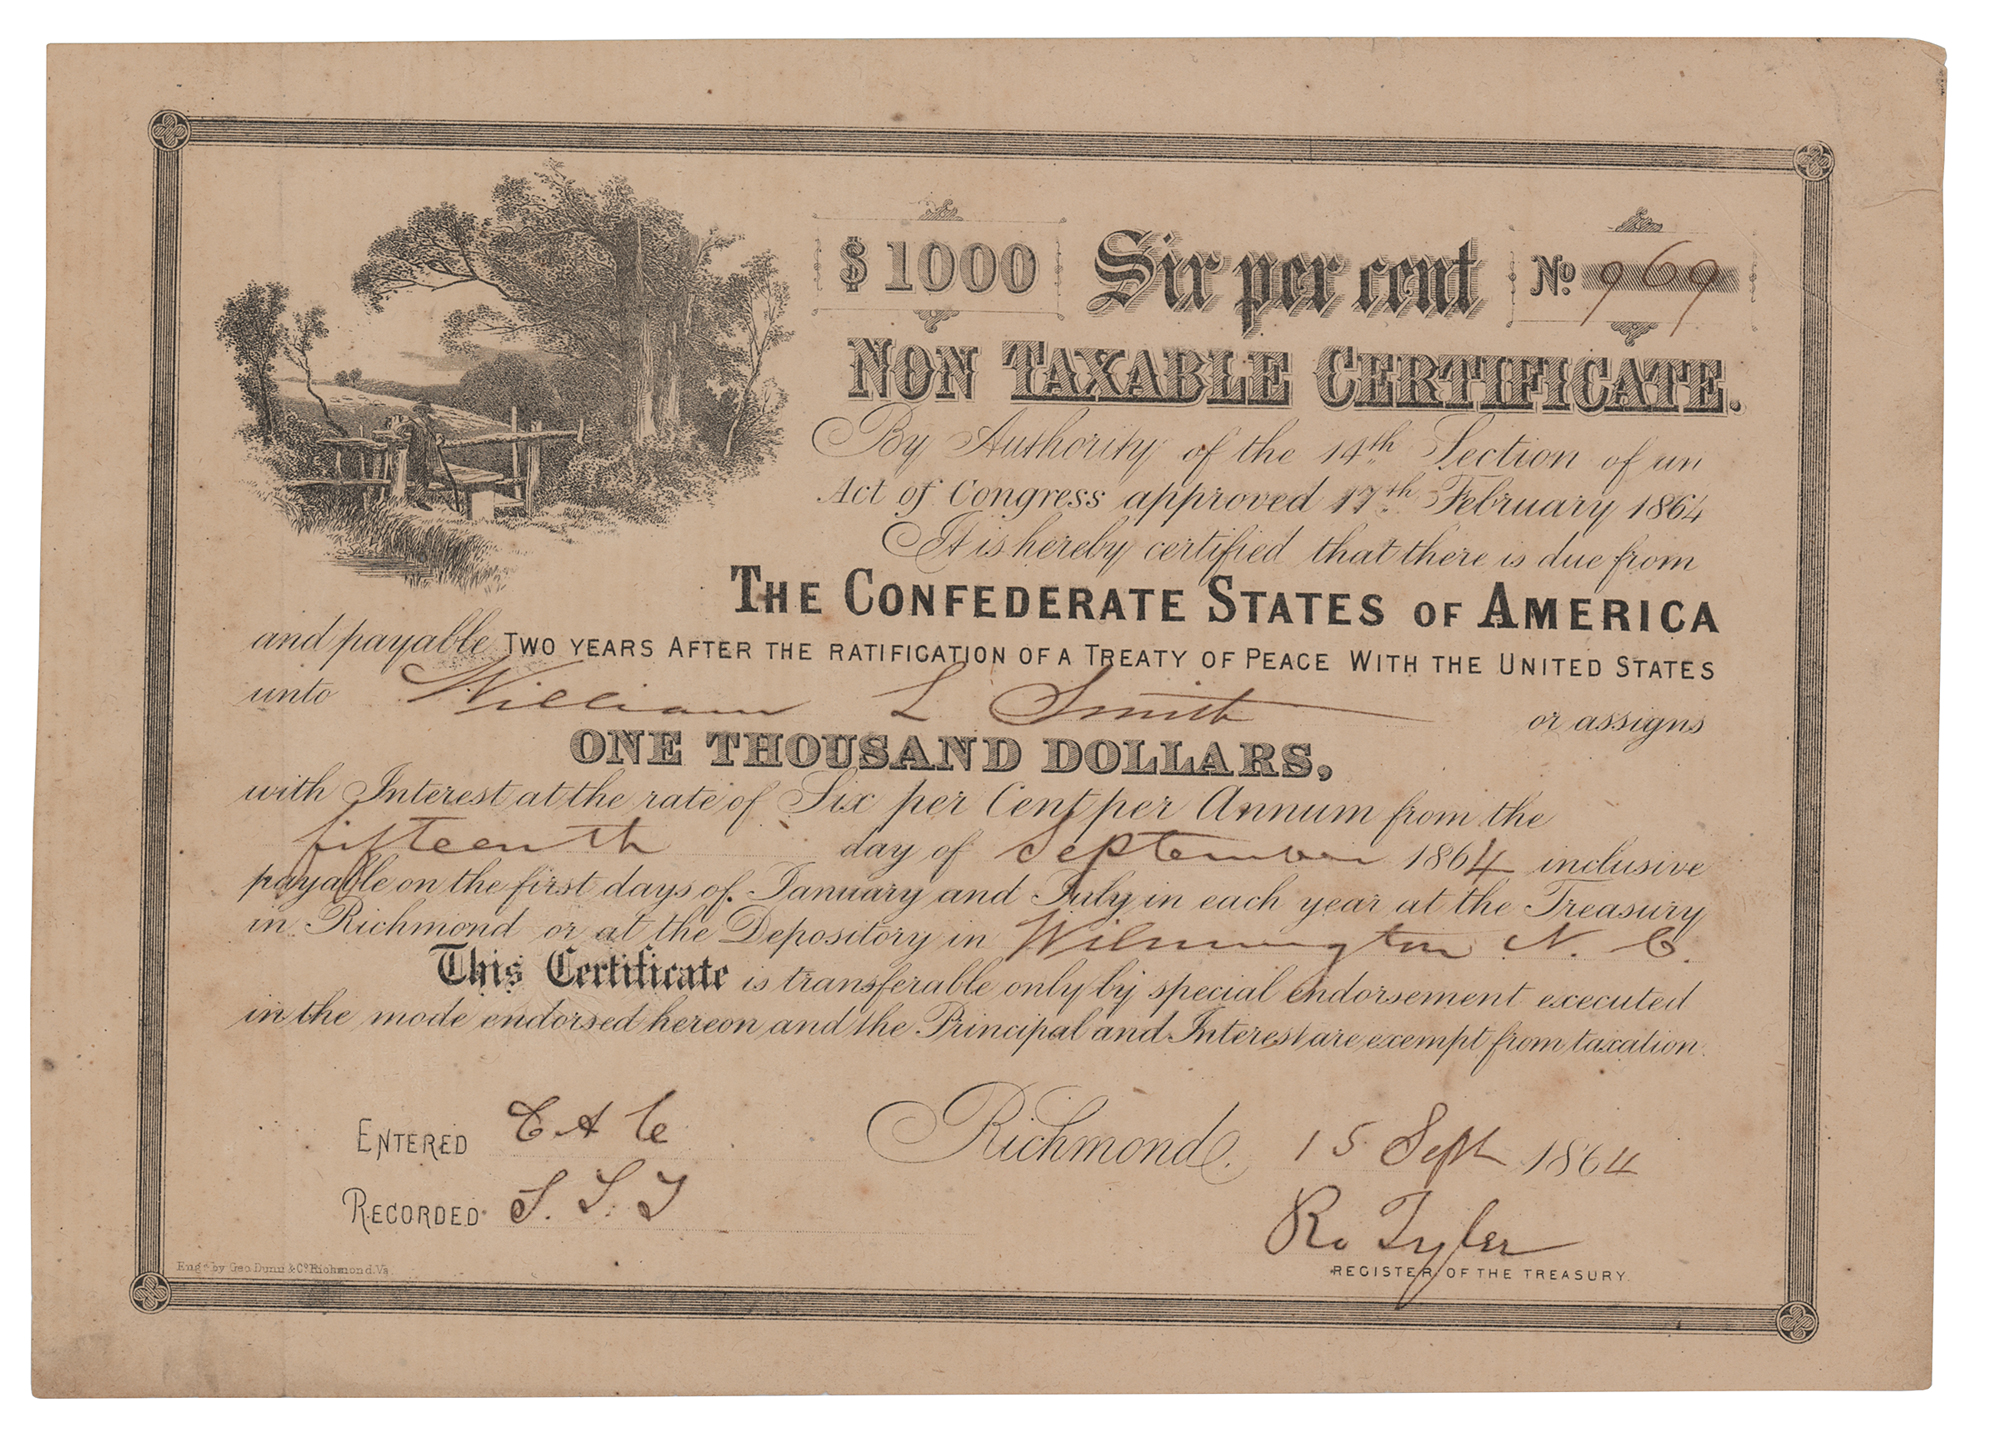 $1000 Six per cent No. 969
NON TAXABLE CERTIFICATE.
By Authority of the 14th Section of an
Act of Congress approved 17th February 1864
It is hereby certified that there is due from
THE CONFEDERATE STATES OF AMERICA
and payable TWO YEARS AFTER THE RATIFICATION OF A TREATY OF PEACE WITH THE UNITED STATES
unto William L Smith or assigns
ONE THOUSAND DOLLARS,
with Interest at the rate of Six per Cent per Annum from the
fifteenth day of September 1864 inclusive
payable on the first days of January and July in each year at the Treasury
in Richmond or at the Depository in Wilmington N. C.
This Certificate is transferable only by special endorsement executed
in the mode endorsed hereon and the Principal and Interest are exempt from taxation.
ENTERED
Richmond, 15 Sept 1864
RECORDED
Ro Tyler
REGISTER OF THE TREASURY.
Engd by Geo. Dunn & Co Richmond. Va.